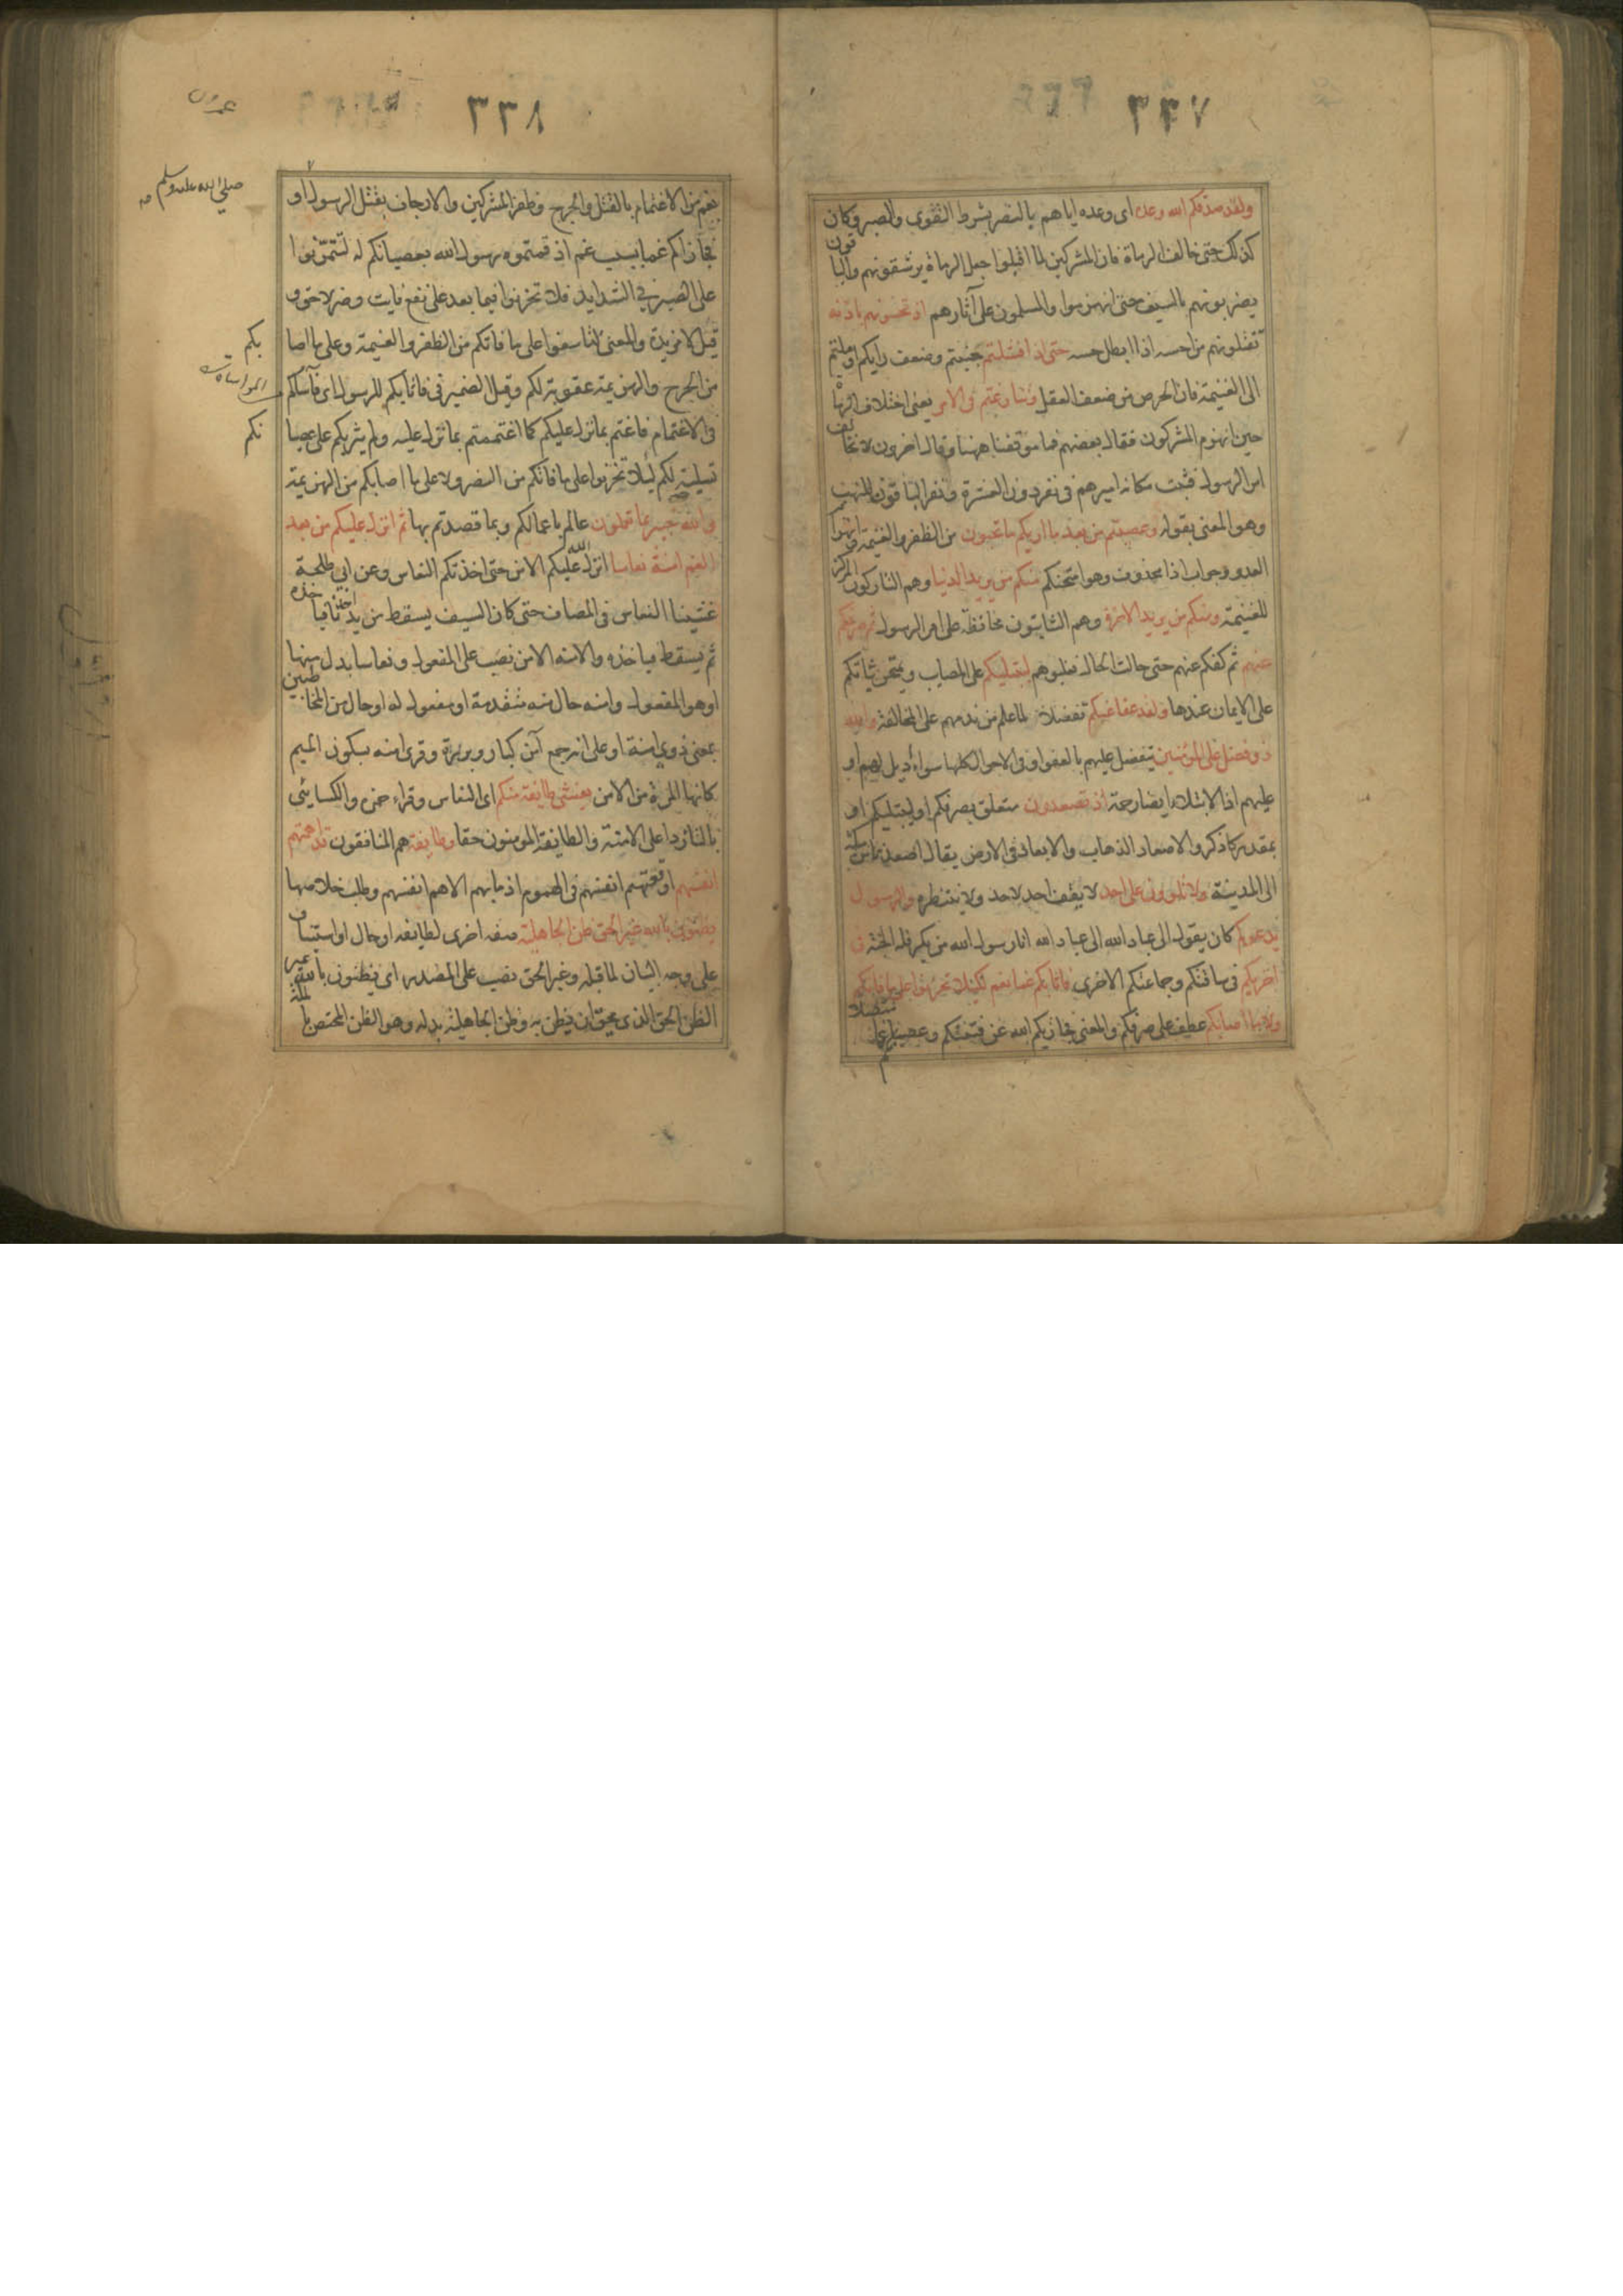 ٣٣٧
ولقد صدقكم الله وعده اى وعده اياهم بالنصر بشرط التقوى والصبر وكان
كذلك حتى خالف الرماة فان المشركين لما اقبلوا جعل الرماة يرشقونهم والباقون
يضربونهم بالسيف حتى انهزموا والمسلمون على آثارهم اذ تحسونهم باذنه
تقتلونهم من احسه اذا ابطل حسه حتى اذا فشلتم جبنتم وضعف رايكم او ملتم
الى الغنيمة فان الحرص من ضعف العقل وتنازعتم فى الامر يعنى اختلاف الرماة
حين انهزم المشركون فقال بعضهم فما موقفنا ههنا وقال اخرون لا نخالف
امر الرسول فثبت مكانه اميرهم فى نفر دون العشرة ونفر الباقون للنهب
وهو المعنى بقوله وعصيتم من بعد ما اريكم ما تحبون من الظفر والغنيمة وانهزام
العدو وجواب اذا محذوف وهو امتحنكم منكم من يريد الدنيا وهم التاركون المركز
للغنيمة ومنكم من يريد الاخرة وهم الثابتون محافظة على امر الرسول ثم صرفكم
عنهم ثم كفكم عنهم حتى حالت الحال فغلبوهم ليبتليكم على المصايب ويمتحن ثباتكم
على الايمان عندها ولقد عفا عنكم تفضلا لما علم من ندمهم على المخالفة والله
ذو فضل على المؤمنين يتفضل عليهم بالعفو او فى الاحوال كلها سواء اديل لهم او
عليهم اذ الابتلاء ايضا رحمة اذ تصعدون متعلق بصرفكم او ليبتليكم او
بمقدر كاذكر والاصعاد الذهاب والابعاد فى الارض يقال اصعدنا من مكة
الى المدينة ولا تلوون على احد لا يقف احد لاحد ولا ينتظره والرسول
يدعوكم كان يقول الى عباد الله الى عباد الله انا رسول الله من يكر فله الجنة فى
اخريكم فى ساقتكم وجماعتكم الاخرى فاثابكم غما بغم لكيلا تحزنوا على ما فاتكم
ولا ما اصابكم عطف على صرفكم والمعنى فجازيكم الله عن فشلكم وعصيانكم غما متصلا
٣٣٨
بغم من الاغتمام بالقتل والجرح وظفر المشركين والارجاف بقتل الرسول او
فجازاكم غما بسبب غم اذقتموه رسول الله بعصيانكم له لتتمرنوا
صلى الله عليه وسلم
على الصبر فى الشدايد فلا تحزنوا فيما بعد على نفع فايت وضر لاحق و
قيل لا مزيدة والمعنى لتاسفوا على ما فاتكم من الظفر والغنيمة وعلى ما اصا
بكم
من الجرح والهزيمة عقوبة لكم وقيل الضمير فى فاثابكم للرسول اى فآساكم
المواساة
فى الاغتمام فاغتم بما نزل عليكم كما اغتممتم بما نزل عليه ولم يثربكم على عصيا
نكم
تسلية لكم ليلا تحزنوا على ما فاتكم من النصر ولا على ما اصابكم من الهزيمة
والله خبير بما تعملون عالم باعمالكم وبما قصدتم بها ثم انزل عليكم من بعد
الغم امنة نعاسا انزل الله عليكم الامن حتى اخذتكم النعاس وعن ابى طلحة
غشينا النعاس فى المصاف حتى كان السيف يسقط من يد احدنا فياخذه
ثم يسقط فياخذه والامنه الامن نصب على المفعول ونعاسا بدل منها
او هو المفعول وامنه حال منه متقدمة او مفعول له او حال من المخاطبين
بمعنى ذوى امنة او على انه جمع آمن كبار وبررة وقرى امنه بسكون الميم
كانها المرة من الامن يغشى طايفة منكم اى النعاس وقراء حمزه والكسايى
بالتا ردا على الامنة والطايفة المومنون حقا وطايفة هم المنافقون قد اهمتهم
انفسهم اوقعتهم انفسهم فى الهموم اذ ما بهم الا هم انفسهم وطلب خلاصها
يظنون بالله غير الحق ظن الجاهلية صفه اخرى لطايفه او حال او استيناف
على وجه البيان لما قبله وغير الحق نصب على المصدر اى يظنون بالله غير
الظن الحق الذى يحق ان يظن به وظن الجاهلية بدله وهو الظن المختص بالملة